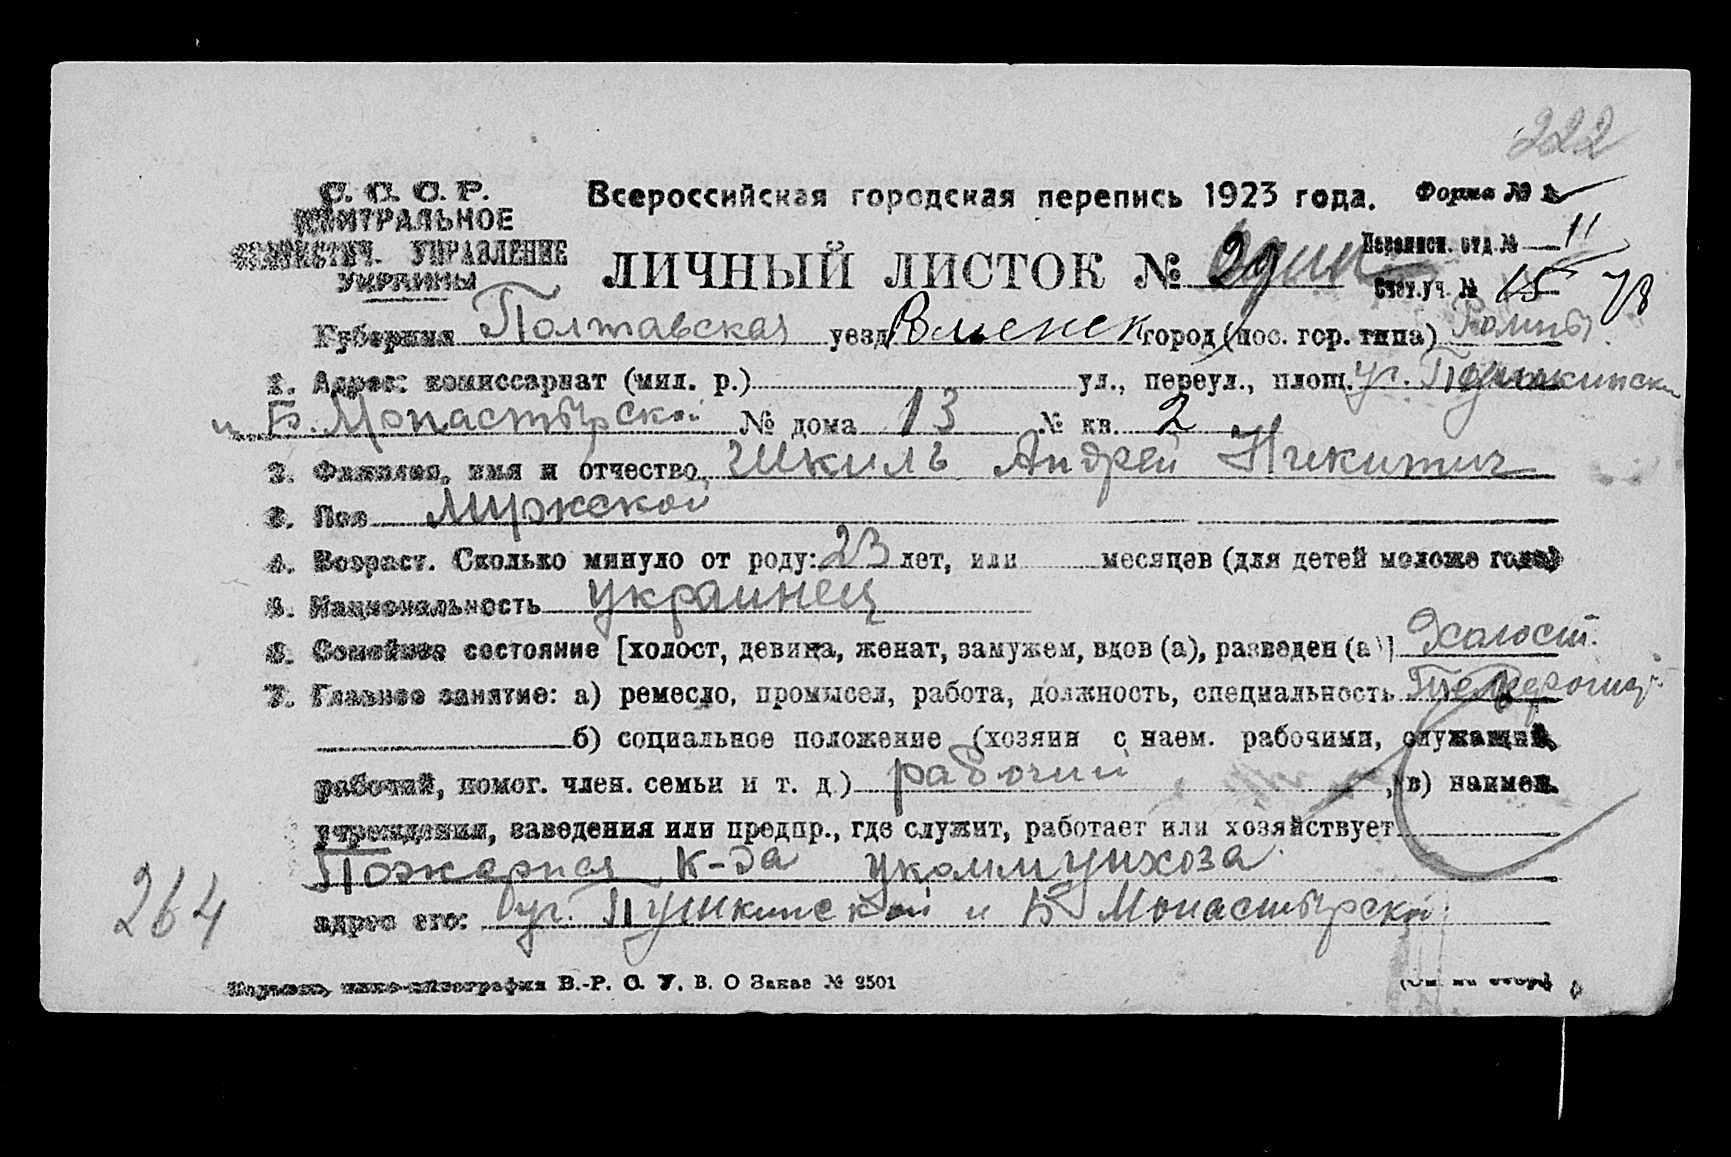 222
С. С. С. Р.
ЦЕНТРАЛЬНОЕ
СТАТИСТИЧ. УПРАВЛЕНИЕ
УКРАИНЫ
Всероссийская городская перепись 1923 года.
Форма №
ЛИЧНЫЙ ЛИСТОК № 29
Переписн. отд. № 11
Счет. уч. № 15 78
Губерния Полтавская уезд город (пос. гор. типа) Ромны
1. Адрес: комиссариат (мил. р.) ул., переул., площ. уг. Пушкинской
и Б. Монастырской № дома 13 № кв. 2
2. Фамилия, имя и отчество Шкиль Андрей Никитич
3. Пол Мужской
4. Возраст. Сколько минуло от роду: 23 лет, или месяцев (для детей моложе года)
5. Национальность украинец
6. Семейное состояние [холост, девица, женат, замужем, вдов (а), разведен (а)] Холост.
7. Главное занятие: а) ремесло, промысел, работа, должность, специальность
б) социальное положение (хозяин с наем. рабочими, служащий,
рабочий, помог. член. семьи и т. д.) рабочий, в) наимен.
учреждения, заведения или предпр., где служит, работает или хозяйствует
Пожарная к-да укоммунхоза
адрес его: уг. Пушкинской и Б Монастырской
264
В.-Р. С. У. В. О Заказ № 2501